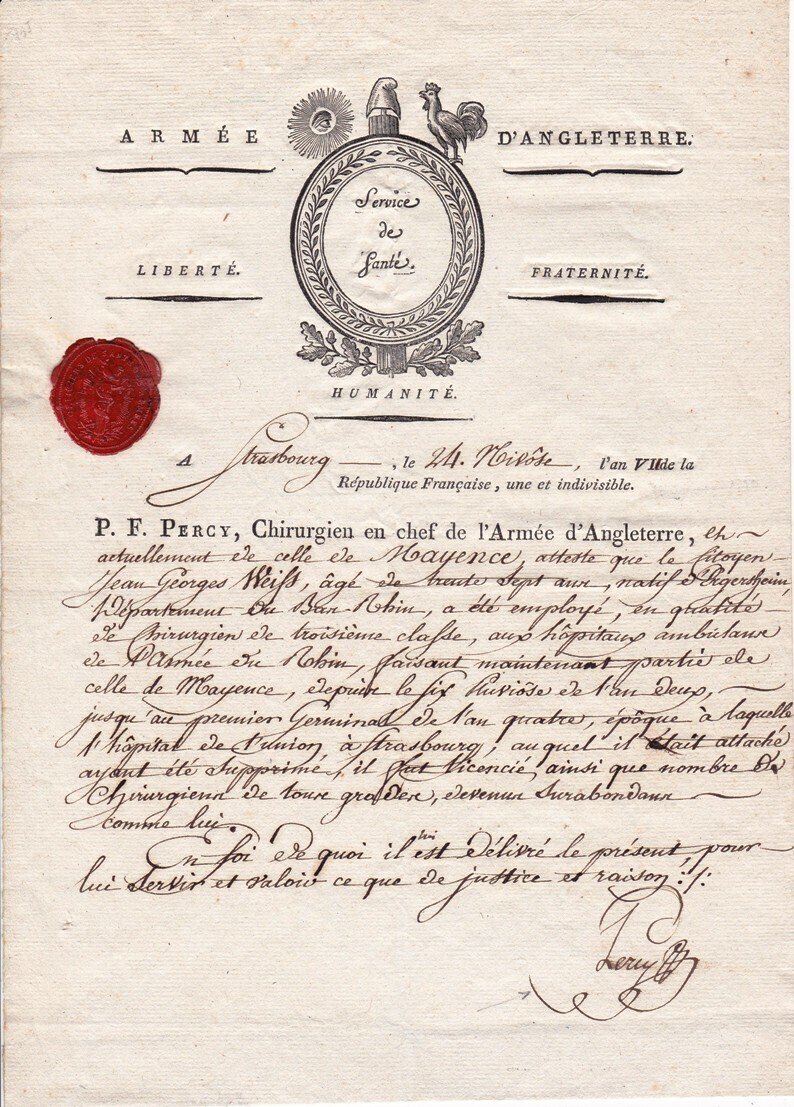 ARMÉE D'ANGLETERRE.
Service
de
Santé.
LIBERTÉ. FRATERNITÉ.
HUMANITÉ.
A Strasbourg, le 24. Nivôse, l'an VII de la
République Française, une et indivisible.
P. F. PERCY, Chirurgien en chef de l'Armée d'Angleterre, et
actuellement de celle de Mayence, atteste que le Citoyen
Jean Georges Weiss, âgé de trente sept ans, natif d'Ergersheim,
Département du Bas-Rhin, a été employé, en qualité
de Chirurgien de troisième classe, aux hôpitaux ambulans
de l'Armée du Rhin, faisant maintenant partie de
celle de Mayence, depuis le six Pluviôse de l'an deux,
jusqu'au premier Germinal de l'an quatre, époque à laquelle
l'hôpital de l'union à Strasbourg, auquel il était attaché
ayant été supprimé, il fut licencié, ainsi que nombre de
Chirurgiens de tous grades, devenus surabondans
comme lui.
En foi de quoi il lui est délivré le présent, pour
lui servir et valoir ce que de justice et raison :/:
Percy